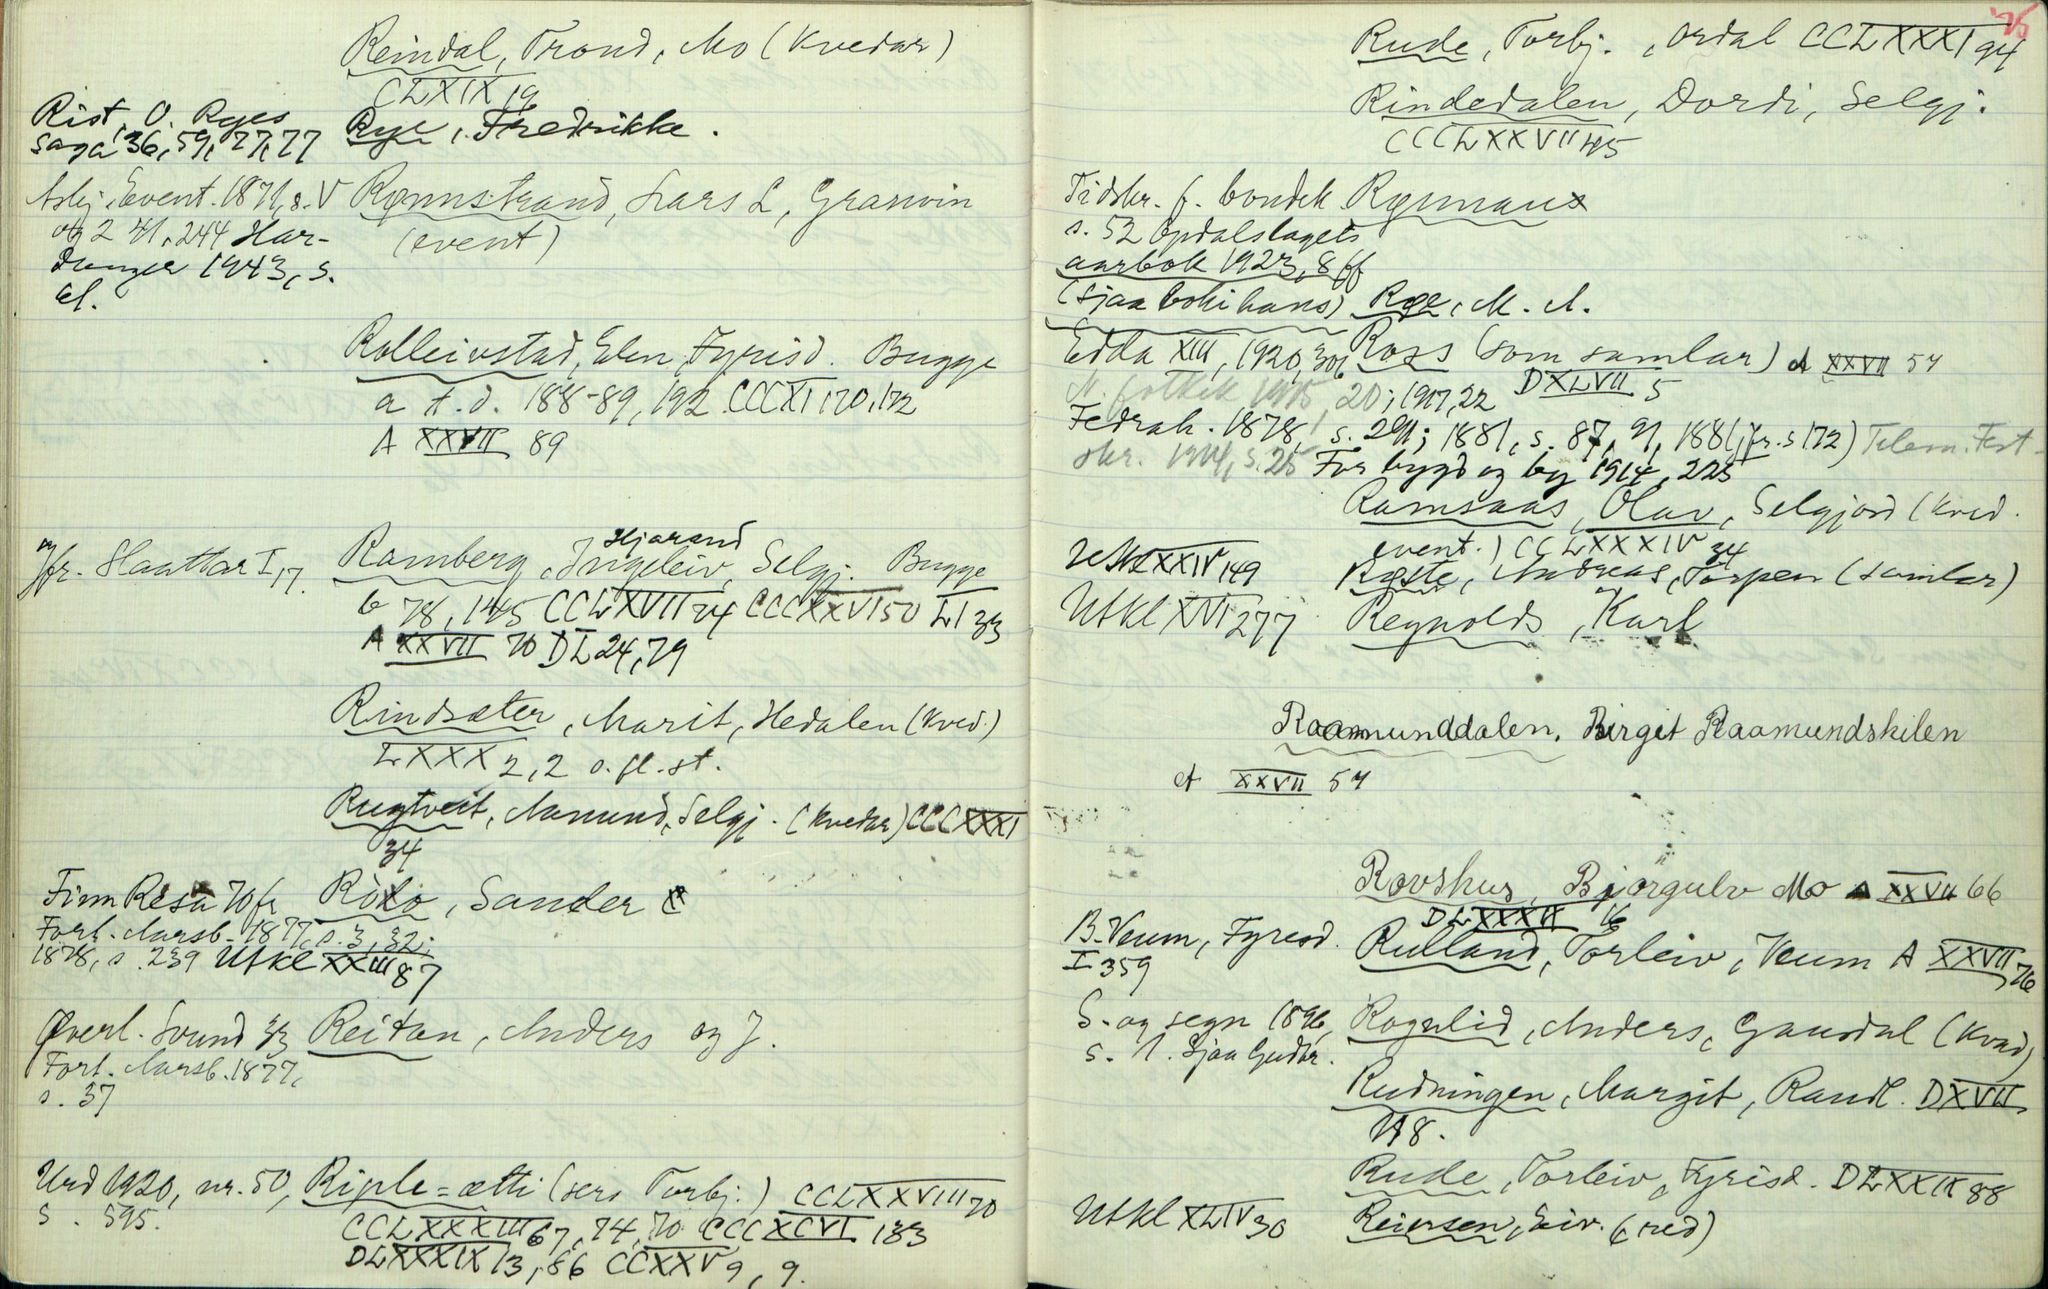 Reindal, Trond, Mo (Kvedar)
CLXIX 19
Rist, O. Ryes
saga '36, 59, 77, 77
Rye, Fredrikke.
Asbj. Event. 1871, s. V
og 241, 244 Har-
danger 1943, s.
61.
Rønnstrand, Lars L, Granvin
(event)
Rolleivstad, Elen, Fyrisd. Bugge
a t.d. 188-89, 192 CCCXI 170, 172
A XXVII 89
Jfr. Slaattar I, 17.
Hjarand
Ramberg, Ingeleiv, Selgj. Bugge
b 78, 145 CCLXVII 24 CCCXXVI 50 LI 33
A XXVII 70 DL 24, 79
Rindsæter, Marit, Hedalen (Kved.)
LXXX 2, 2 o. fl. st.
Rugtveit, Aamund, Selgj. (Kvedar) CCCXXXI
34
Finn Resa 70 fr
Fort. Aarsb. 1877, s. 3, 32;
1878, s. 239 Utkl XXIII 87
Rolo, Sander
Øverl. Svund 33
Fort. Aarsb. 1877,
s. 37
Reitan, Anders og J.
Urd 1920, nr. 50,
s. 595.
Riple-ætti (sers Turbj.) CCLXXVIII 70
CCLXXXIII 67, 74, 70 CCCXCVI 183
DLXXXIX 13, 86 CCXXV 9, 9.
75
Rude, Torbj., Ordal CCLXXXI 94
Rindedalen, Dordi, Selgj.
CCCLXXVII 45
Tidskr. f. bondek
s. 52 Opdalslagets
aarbok 1923, 8 ff
(sjaa boki hans)
Rye, M. A.
Edda XIII, 1920, 306
Ross (som samlar) A XXVII 57
DXLVII 5
N. folkek 1915, 20; 1917, 22
Fedrah. 1878, s. 291; 1881, s. 87, 91, 1881, (jfr. s 172) Telem. Fest-
skr. 1914, s. 25 For bygd og by 1914, 225
Ramsaas, Olav, Selgjord (Kved.
event.) CCLXXXIV 34
Utkl XXIV 149
Røste, Andreas, Torpen (samlar)
Utkl XVI 277
Reynolds, Karl
Raamunddalen, Birgit Raamundskilen
A XXVII 57
Rovshus, Bjørgulv Mo A XXVII 66
DLXXXIX 16
B. Veum, Fyresd.
I 359
Rulland, Torleiv, Veum A XXVII 76
S. og segn 1896,
s. 1. Sjaa Gudbr.
Rognlid, Anders, Gausdal (Kvad)
Rudningen, Margit, Raudl. DXVII
118.
Rude, Torleiv, Fyrisd. DLXXIX 88
Utkl XLIV 30
Reiersen, Eiv. (red)